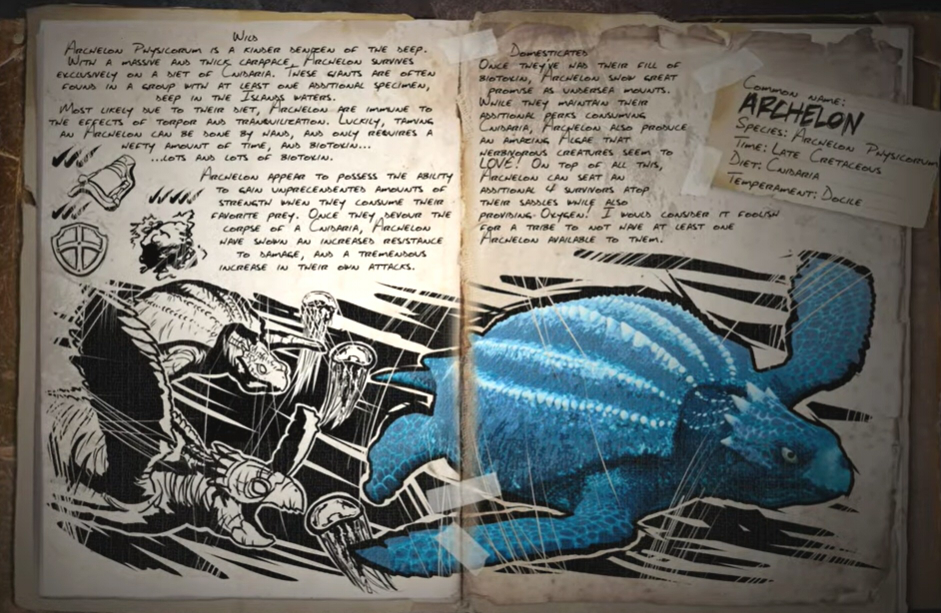 Wild
Archelon Physicorum is a kinder denizen of the deep.
With a massive and thick carapace, Archelon survives
exclusively on a diet of Cnidaria. These giants are often
found in a group with at least one additional specimen,
deep in the Islands waters.
Most likely due to their diet, Archelon are immune to
the effects of torpor and tranquilization. Luckily, taming
an Archelon can be done by hand, and only requires a
hefty amount of time, and biotoxin...
...lots and lots of biotoxin.
Archelon appear to possess the ability
to gain unprecendented amounts of
strength when they consume their
favorite prey. Once they devour the
corpse of a Cnidaria, Archelon
have shown an increased resistance
to damage, and a tremendous
increase in their own attacks.
Domesticated
Once they've had their fill of
biotoxin, Archelon show great
promise as undersea mounts.
While they maintain their
additional perks consuming
Cnidaria, Archelon also produce
an amazing Algae that
herbivorous creatures seem to
LOVE! On top of all this,
Archelon can seat an
additional 4 survivors atop
their saddles while also
providing Oxygen! I would consider it foolish
for a tribe to not have at least one
Archelon available to them.
Common name:
ARCHELON
Species: Archelon Physicorum
Time: Late Cretaceous
Diet: Cnidaria
Temperament: Docile